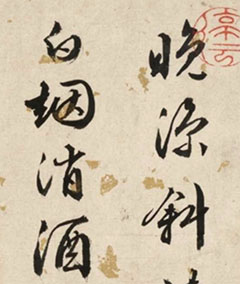 晚涼斜
白烟消酒